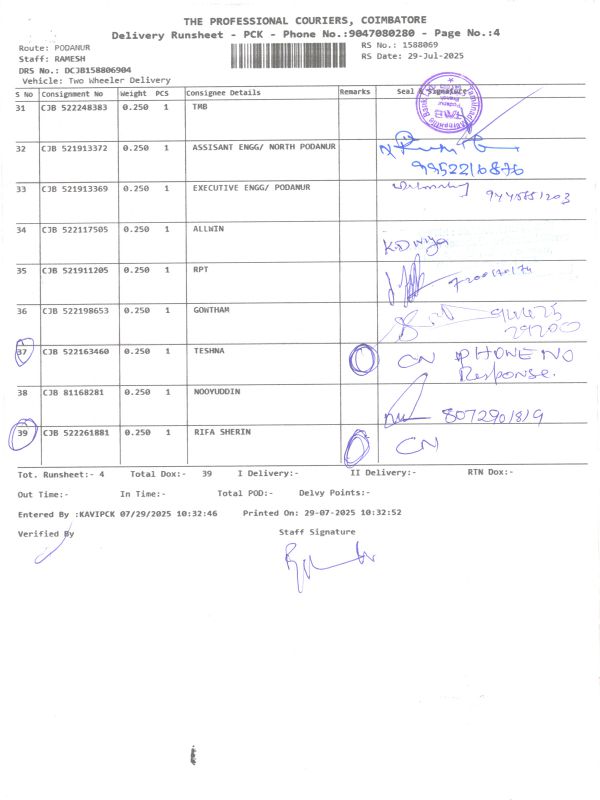 THE PROFESSIONAL COURIERS, COIMBATORE
Delivery Runsheet - PCK - Phone No.:9047080280 - Page No.:4
Route: PODANUR RS No.: 1588069
Staff: RAMESH RS Date: 29-Jul-2025
DRS No.: DCJB158806904
Vehicle: Two Wheeler Delivery
S No Consignment No Weight PCS Consignee Details Remarks Seal & Signature
31 CJB 522248383 0.250 1 TMB
32 CJB 521913372 0.250 1 ASSISANT ENGG/ NORTH PODANUR
9952216876
33 CJB 521913369 0.250 1 EXECUTIVE ENGG/ PODANUR
34 CJB 522117505 0.250 1 ALLWIN
35 CJB 521911205 0.250 1 RPT
36 CJB 522198653 0.250 1 GOWTHAM 94425
29200
37 CJB 522163460 0.250 1 TESHNA O CN PHONE NO
Response.
38 CJB 81168281 0.250 1 NOOYUDDIN
8072901819
39 CJB 522261881 0.250 1 RIFA SHERIN O CN
Tot. Runsheet:- 4 Total Dox:- 39 I Delivery:- II Delivery:- RTN Dox:-
Out Time:- In Time:- Total POD:- Delvy Points:-
Entered By :KAVIPCK 07/29/2025 10:32:46 Printed On: 29-07-2025 10:32:52
Verified By Staff Signature